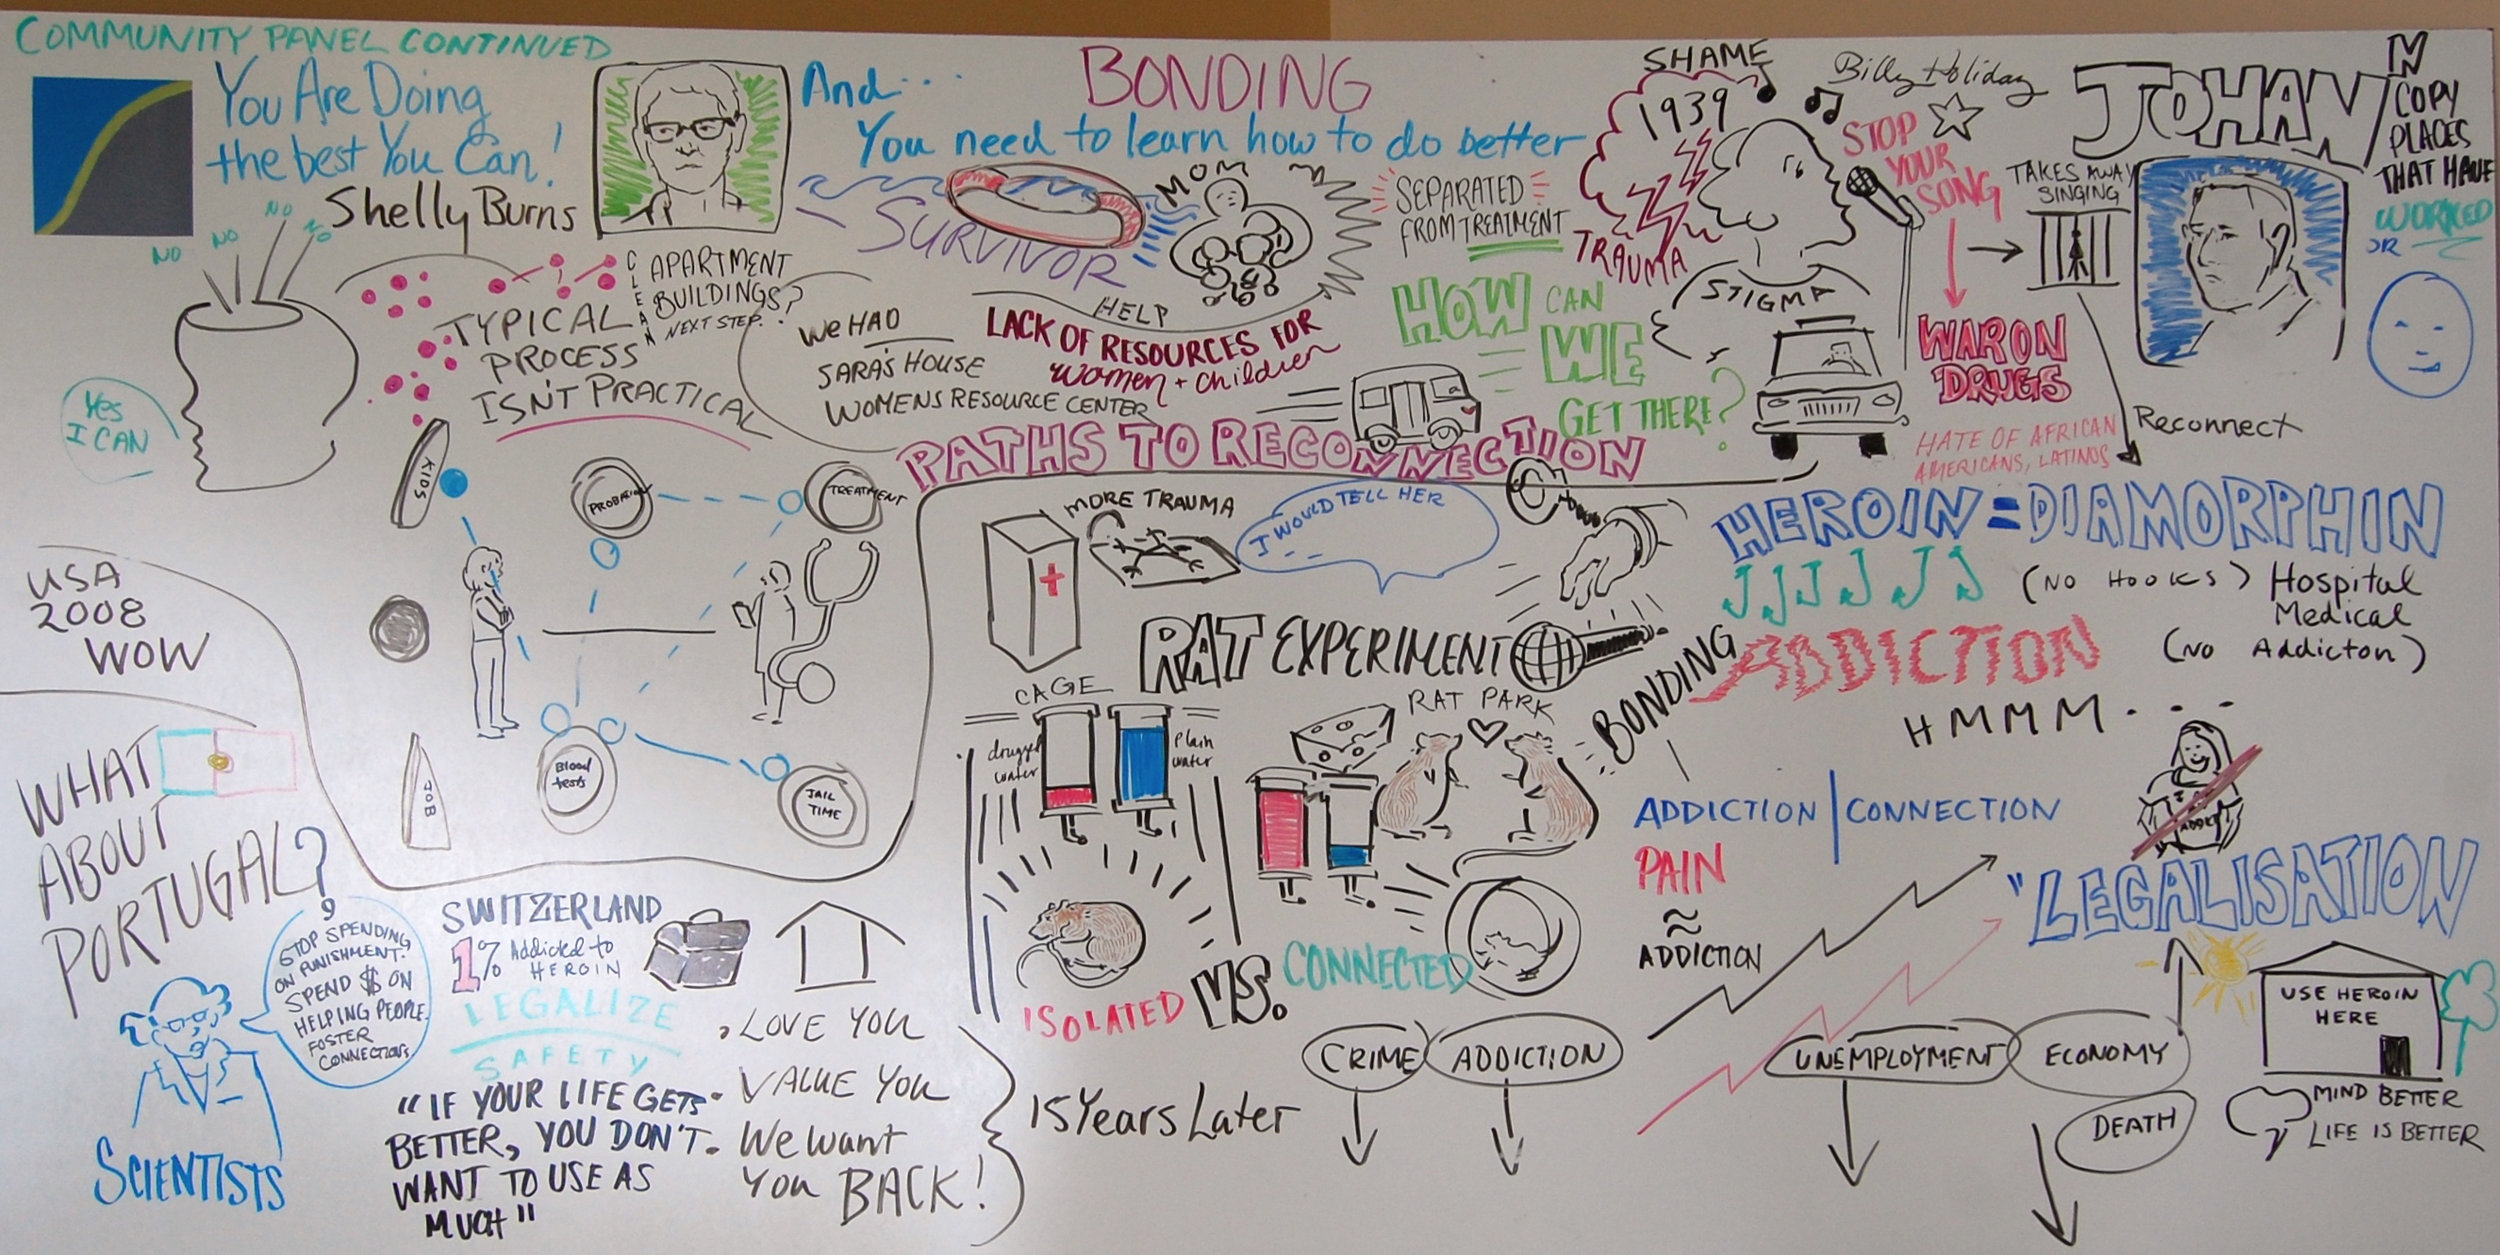 COMMUNITY PANEL CONTINUED
You Are Doing
the best You Can!
Shelly Burns
And...
BONDING
You need to learn how to do better
SURVIVOR
MOM
HELP
LACK OF RESOURCES FOR
women + children
WE HAD
SARA'S HOUSE
WOMENS RESOURCE CENTER
NO
NO
NO
NO
Yes
I CAN
TYPICAL
PROCESS
ISN'T PRACTICAL
CLEAN
APARTMENT
BUILDINGS?
NEXT STEP.
KIDS
PROBATION
TREATMENT
Blood
tests
JAIL
TIME
JOB
SEPARATED
FROM TREATMENT
HOW CAN
WE
GET THERE?
PATHS TO RECONNECTION
SHAME
1939
TRAUMA
STIGMA
Billy Holiday
STOP
YOUR
SONG
TAKES AWAY
SINGING
WAR ON
DRUGS
HATE OF AFRICAN
AMERICANS, LATINOS
Reconnect
JOHANN
COPY
PLACES
THAT HAVE
WORKED
OR
USA
2008
WOW
WHAT
ABOUT
PORTUGAL?
STOP SPENDING
ON PUNISHMENT.
SPEND $ ON
HELPING PEOPLE.
FOSTER
CONNECTIONS
SCIENTISTS
SWITZERLAND
1% Addicted to
HEROIN
LEGALIZE
SAFETY
"IF YOUR LIFE GETS
BETTER, YOU DON'T
WANT TO USE AS
MUCH"
LOVE YOU
VALUE YOU
We want
You BACK!
15 Years Later
MORE TRAUMA
I WOULD TELL HER
RAT EXPERIMENT
CAGE
drugged
water
plain
water
RAT PARK
ISOLATED VS. CONNECTED
BONDING
HEROIN = DIAMORPHIN
(NO HOOKS) Hospital
Medical
(NO Addicton)
ADDICTION
HMMM....
ADDICTION | CONNECTION
PAIN
≈
ADDICTION
ADDICT
"LEGALISATION
CRIME
ADDICTION
UNEMPLOYMENT
ECONOMY
DEATH
USE HEROIN
HERE
MIND BETTER
LIFE IS BETTER